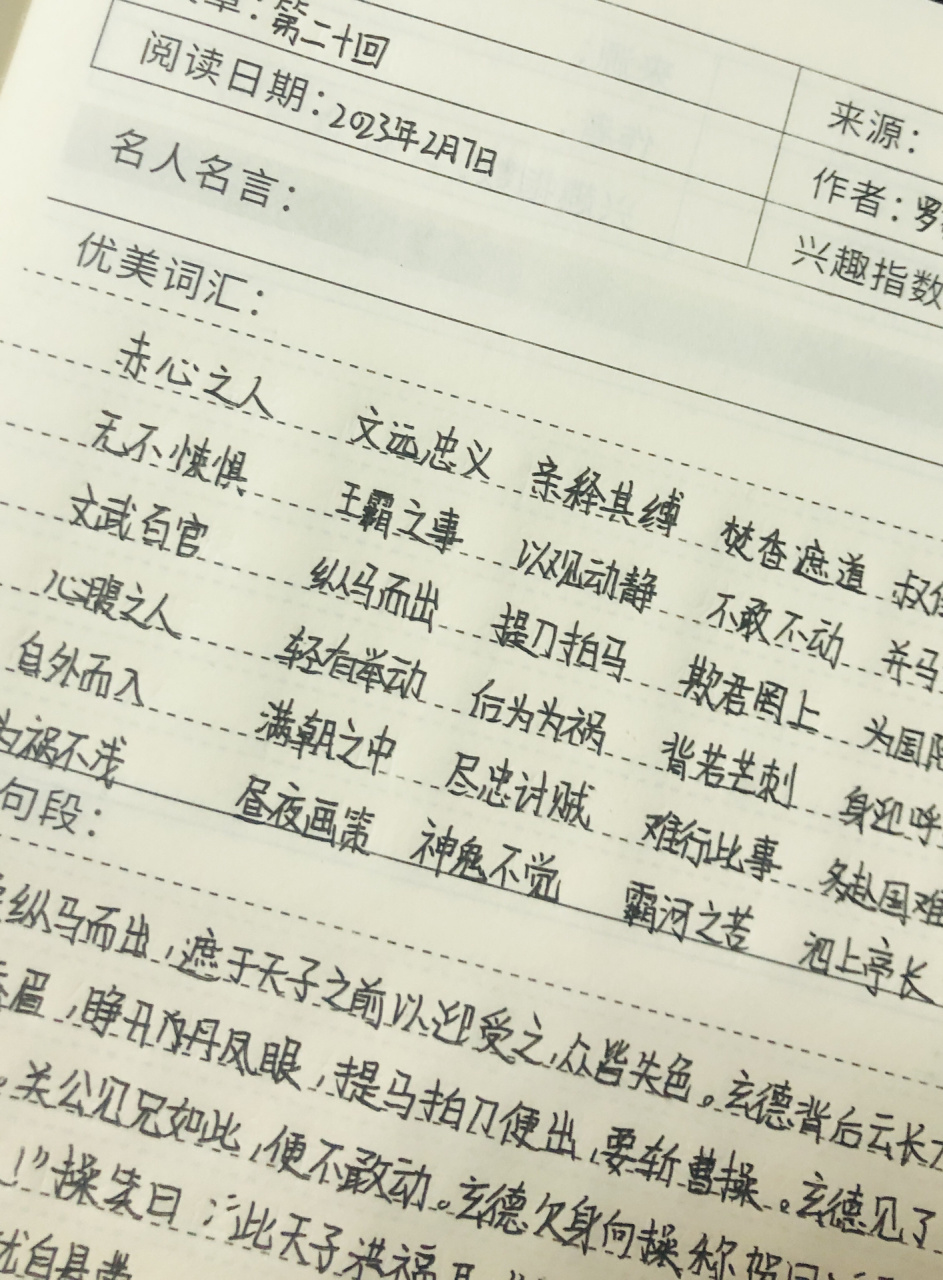 章：第二十回
阅读日期：2023年2月7日
来源：
作者：罗
兴趣指数
名人名言：
优美词汇：
赤心之人 文远忠义 亲释其缚 焚香遮道 叔
无不悚惧 王霸之事 以观动静 不敢不动 并马
文武百官 纵马而出 提刀拍马 欺君罔上 为国
心腹之人 轻有举动 后为为祸 背若芒刺 身迎呼
自外而入 满朝之中 尽忠讨贼 难行此事 各赴国难
为祸不浅 昼夜画策 神鬼不觉 霸河之苦 泗上亭长
句段：
纵马而出，遮于天子之前以迎受之，众皆失色。玄德背后云长
眉，睁开丹凤眼，提马拍刀便出，要斩曹操。玄德见了
。关公见兄如此，便不敢动。玄德欠身向操称贺曰
！”操笑曰：“此天子洪福
自县带